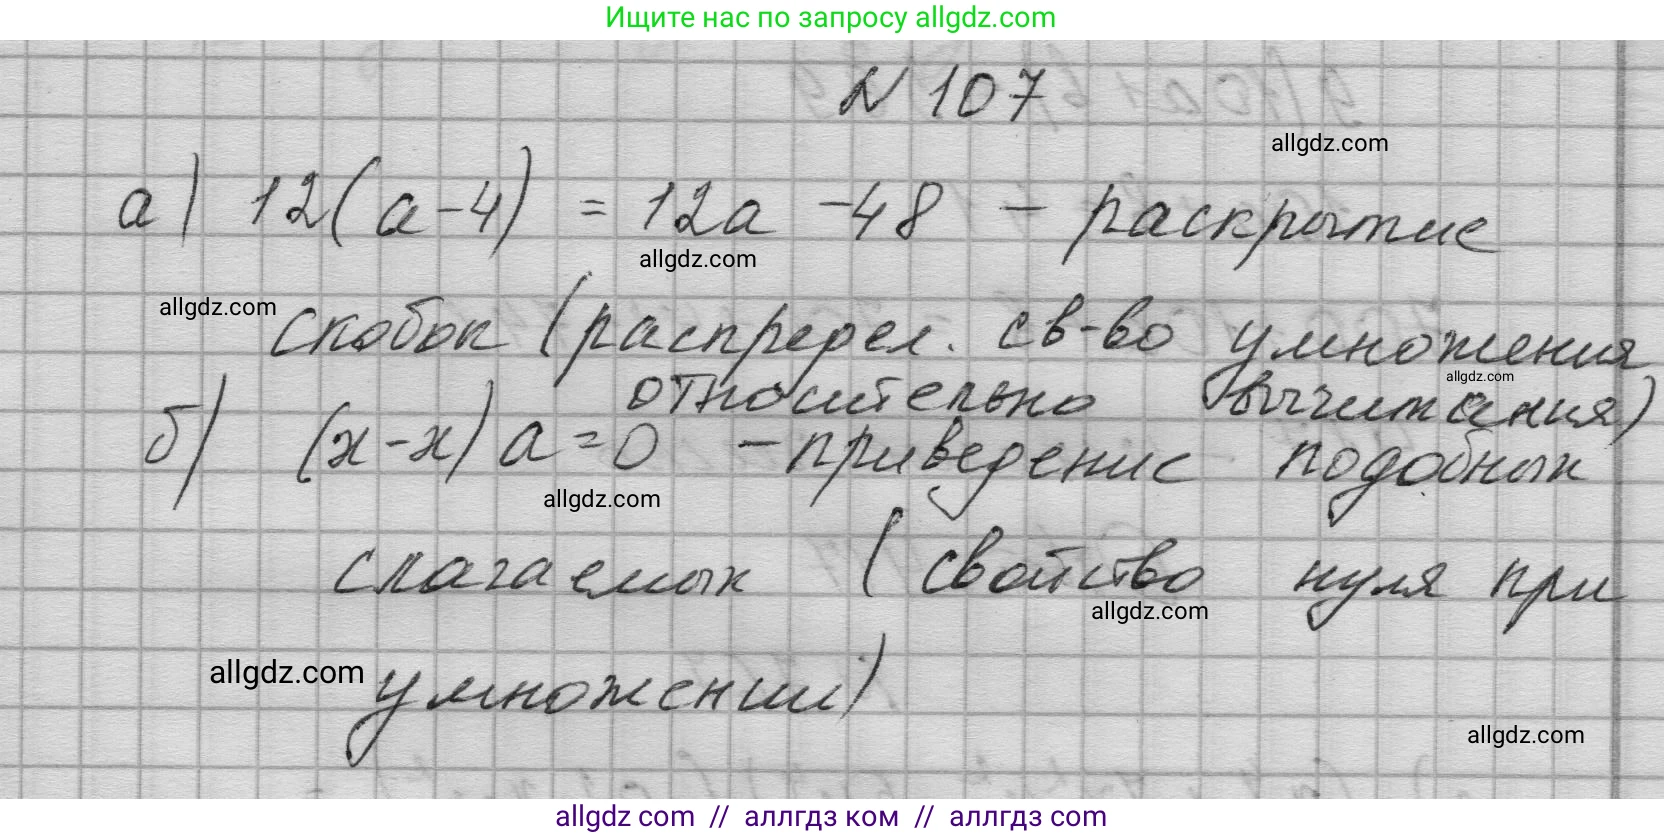 Ищите нас по запросу allgdz.com
№ 107
allgdz.com
а) 12(а-4) = 12а -48 - раскрытие
allgdz.com
allgdz.com
скобок (распредел. св-во умножения
allgdz.com
относительно вычитания)
б) (х-х)а=0 -приведение подобных
allgdz.com
слагаемых (свойство нуля при
allgdz.com
allgdz.com
умножении)
allgdz.com
allgdz com // аллгдз ком // аллгдз com